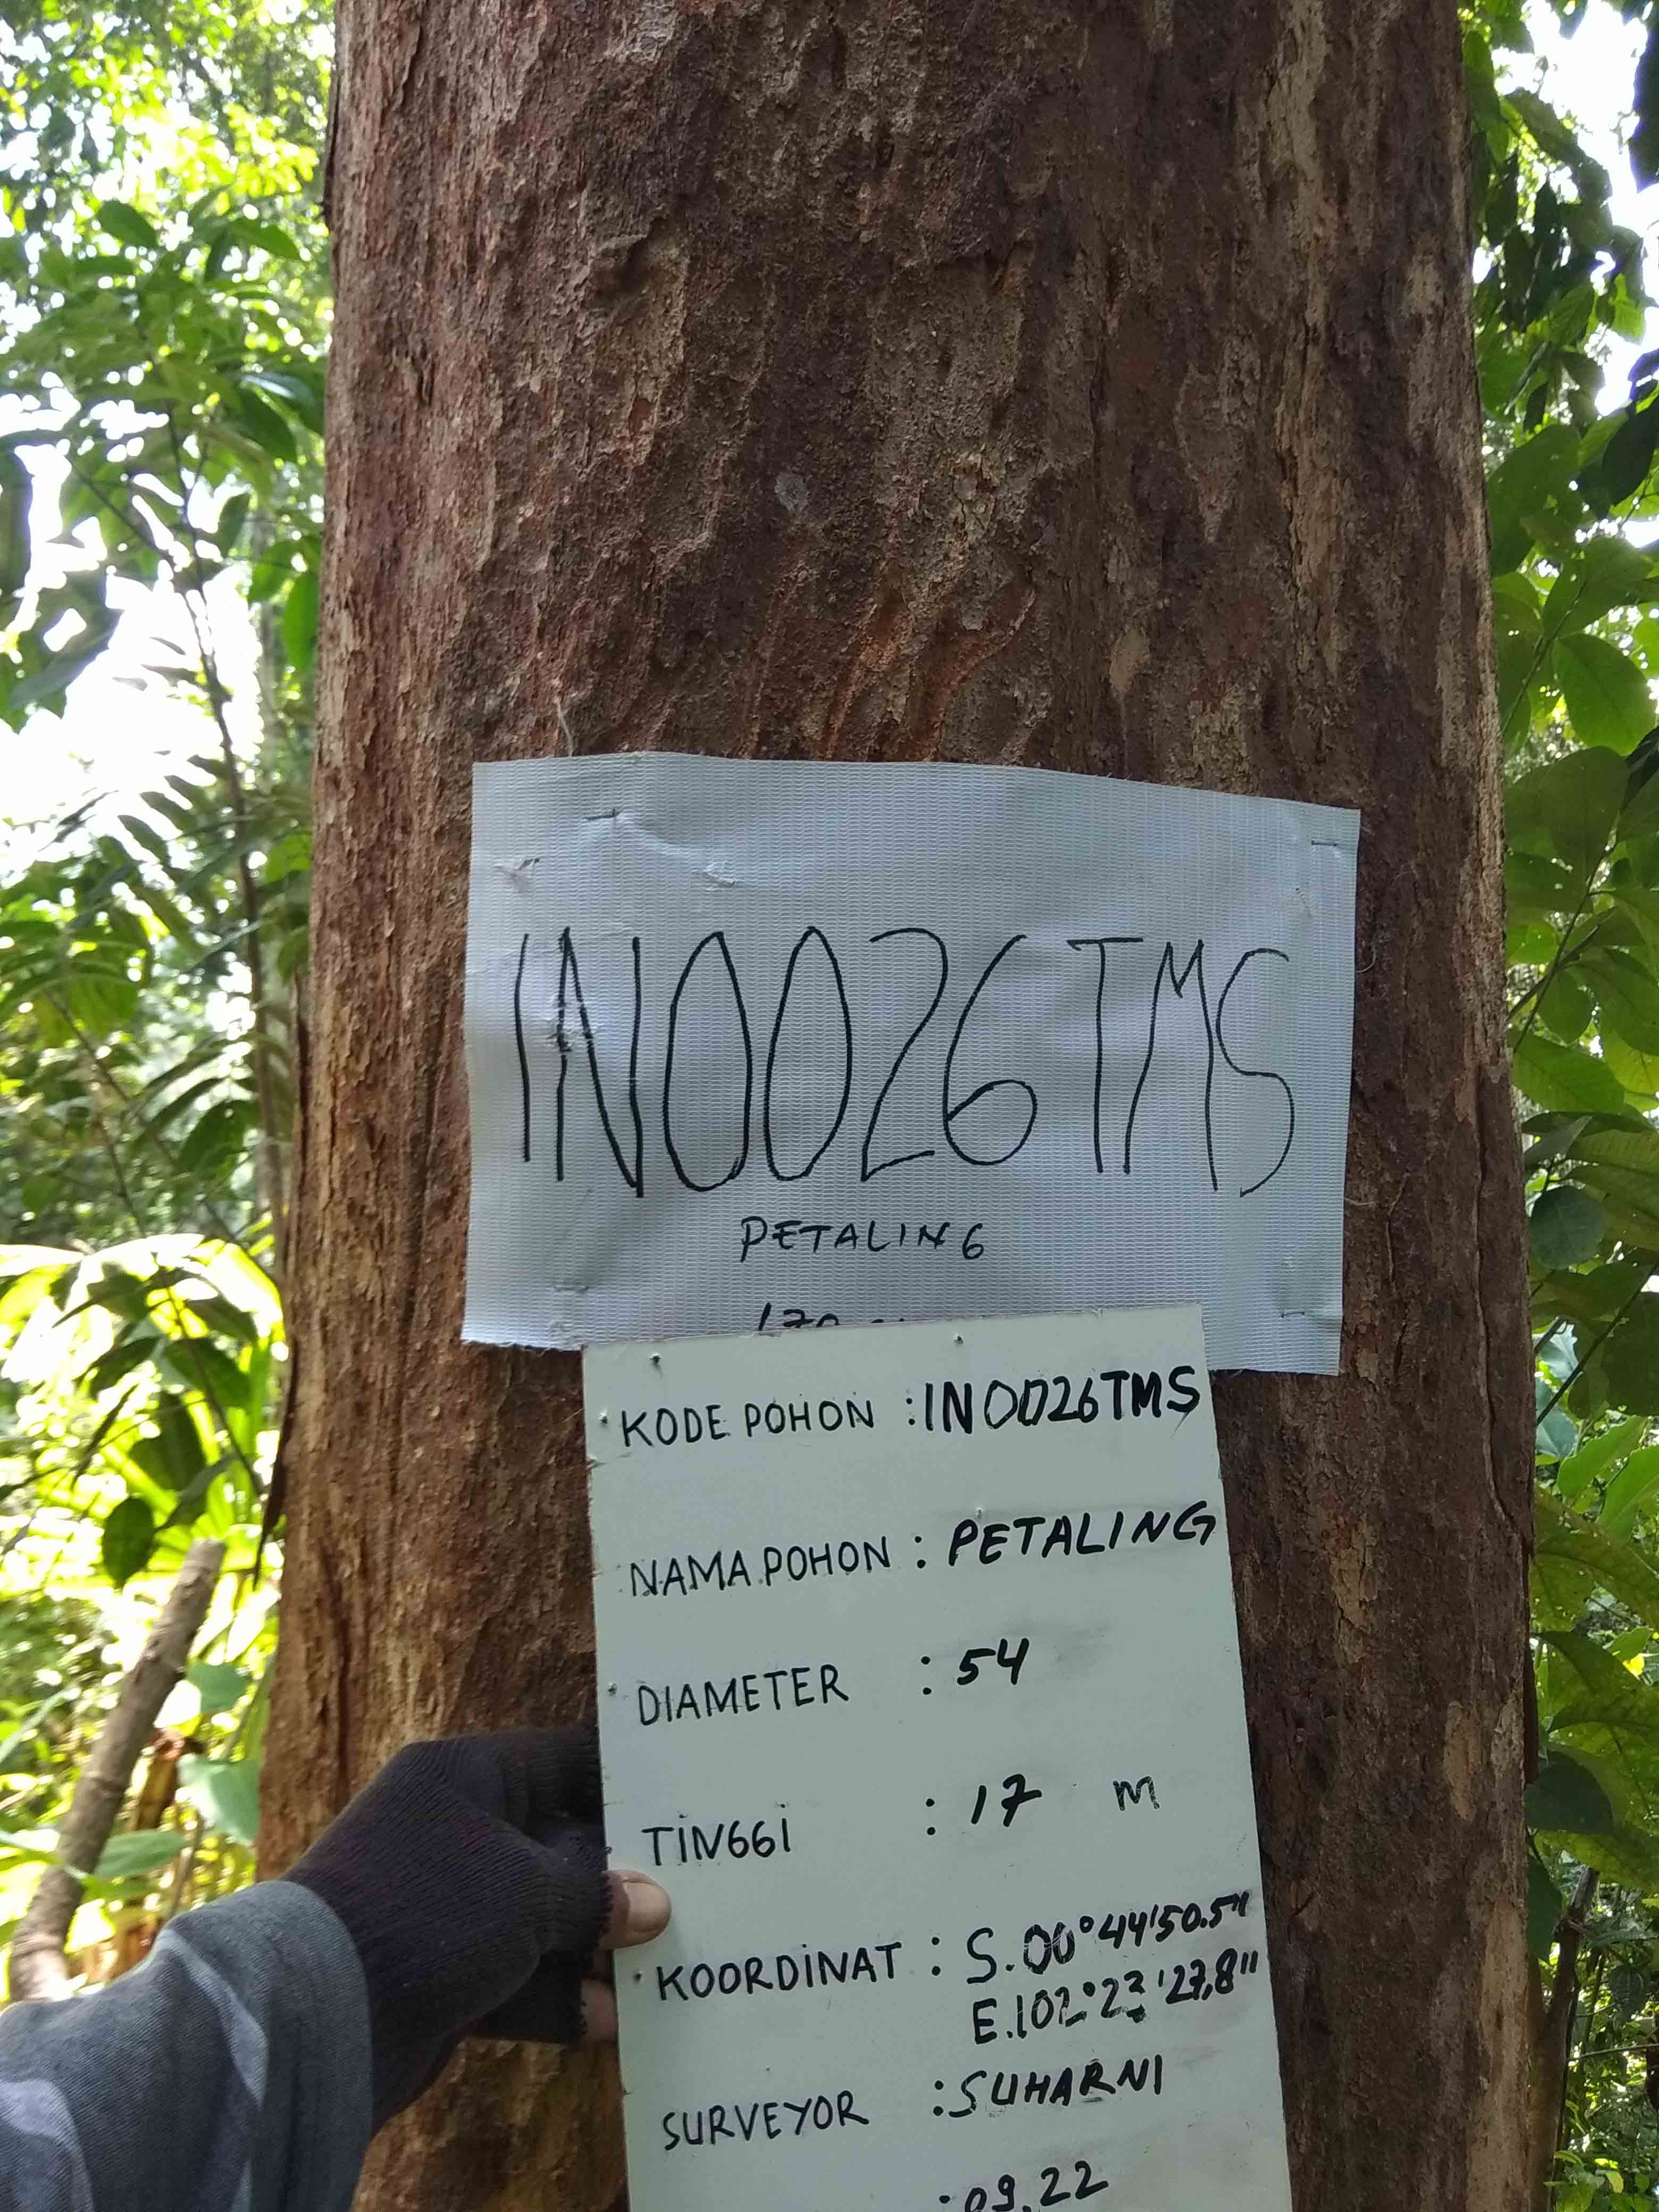 IN0026TMS
PETALING
KODE POHON : IN0026TMS
NAMA POHON : PETALING
DIAMETER : 54
TINGGI : 17 m
KOORDINAT : S.00°44'50.5"
E.102°23'27,8"
SURVEYOR : SUHARNI
: 09.22